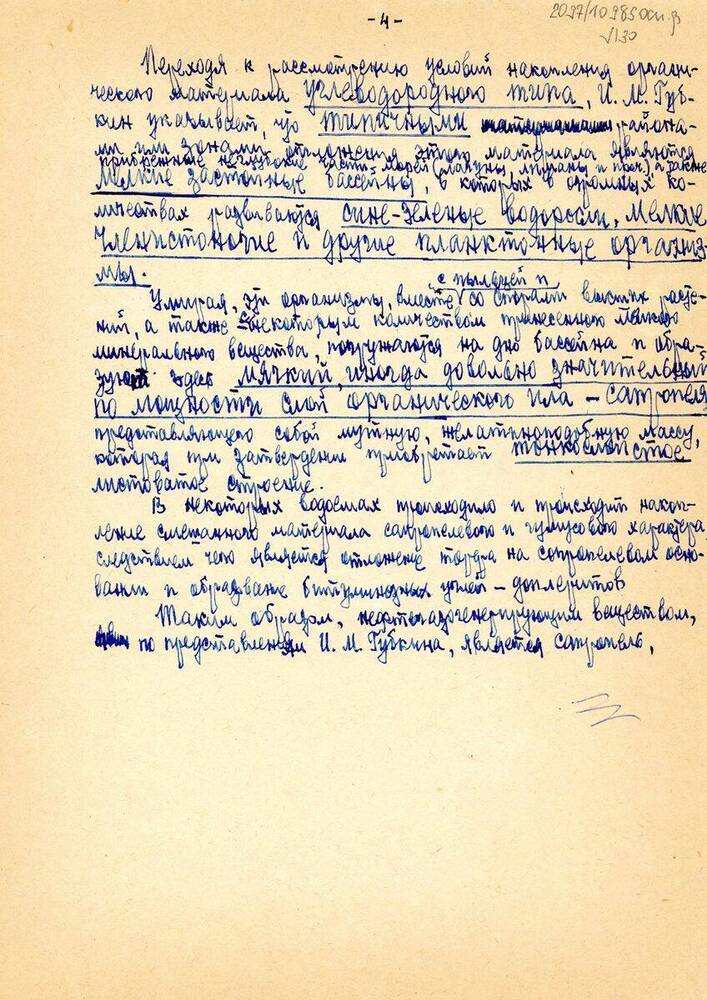 - 4 -
Переходя к рассмотрению условий накопления органи-
ческого материала углеводородного типа, И. М. Губ-
кин указывает, что типичными района-
ми или зонами отложения этого материала являются
прибрежные неглубокие части морей (лагуны, лиманы и проч.), а также
мелкие застойные бассейны, в которых в огромных ко-
личествах развиваются сине-зеленые водоросли, мелкие
членистоногие и другие планктонные организ-
мы.
с пыльцей и
Умирая, эти организмы, вместе со спорами высших расте-
ний, а также с некоторым количеством принесенного мелкого
минерального вещества, погружаются на дно бассейна и обра-
зуют здесь мягкий, иногда довольно значительный
по мощности слой органического ила – сапропеля,
представляющего собой мутную, желатиноподобную массу,
которая при затвердении приобретает тонкослоистое
листоватое строение.
В некоторых водоемах происходило и происходит накоп-
ление смешанного материала сапропелевого и гумусового характера,
следствием чего является отложение торфа на сапропелевом осно-
вании и образование битуминозных углей – доплеритов
Таким образом, нефтегазогенерирующим веществом,
по представлениям И. М. Губкина, является сапропель,